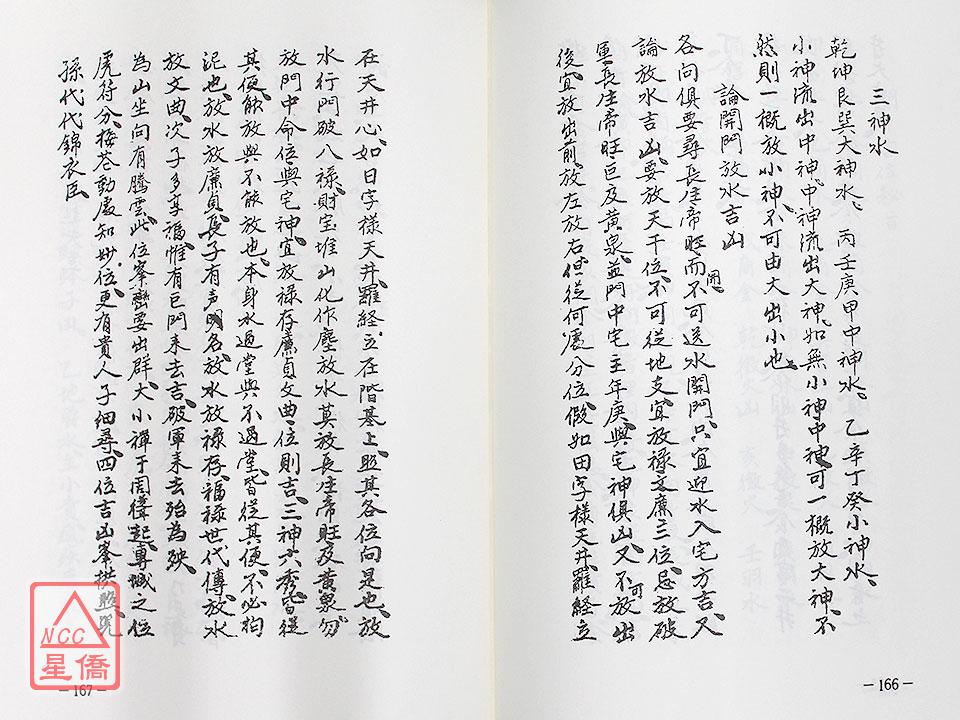 三神水
乾坤艮巽大神水、丙壬庚甲中神水、乙辛丁癸小神水、
小神流出中神、中神流出大神、如無小神中神可一概放大神、不
然則一概放小神、不可由大出小也、
論開門放水吉凶
各向俱要尋長庄帝旺而不可送水開門、只宜迎水入宅方吉、又
開
論放水吉凶、要放天干位、不可從地支、宜放祿文廉三位、忌放破
軍長庄帝旺巨及黃泉、並門中宅主年庚、與宅神俱凶、又不可放出
後、宜放出前、放左放右、但從何處分位、假如田字樣天井、羅経立
－166－
在天井心、如日字樣天井、羅経立在階基上、照其各位向是也、放
水行門破八祿、財宝堆山化作塵、放水莫放長庄帝旺及黃泉、勿
放門中命位與宅神、宜放祿存廉貞文曲位則吉、三神六秀、皆從
其便、能放與不能放也、本身水過堂與不過堂、皆從其便、不必拘
泥也、放水放廉貞、長子有声名、放水放祿存、福祿世代傳、放水
放文曲、次子多享福、惟有巨門来去吉、破軍来去殆為殃、
為山坐向有騰雲、此位峯巒要出群、大小禪于周偉起、專城之位
虎符分、接苍動處知妙位、更有貴人子細尋、四位吉凶峯拱照、兒
孫代代錦衣臣、
NCC
星僑
－167－